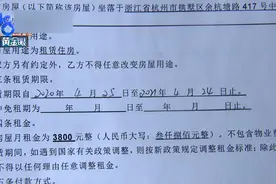 房屋(以下简称该房屋)坐落于浙江省杭州市拱墅区余杭塘路417号中
黄金眼
用途。
屋用途为租赁住房。
方另有约定外,乙方不得任意改变房屋用途。
条租赁期限。
自2020年4月25日至2021年4月24日止。
中免租期为 年 月 日至 年 月 日。
条租金。
屋月租金为3800元整(人民币大写:叁仟捌佰元整),不包含物业
赁期间,如遇到国家有关政策调整,则按新政策规定调整租金标准;除此
不得以任何理由任意调整租金。
条付款方式。